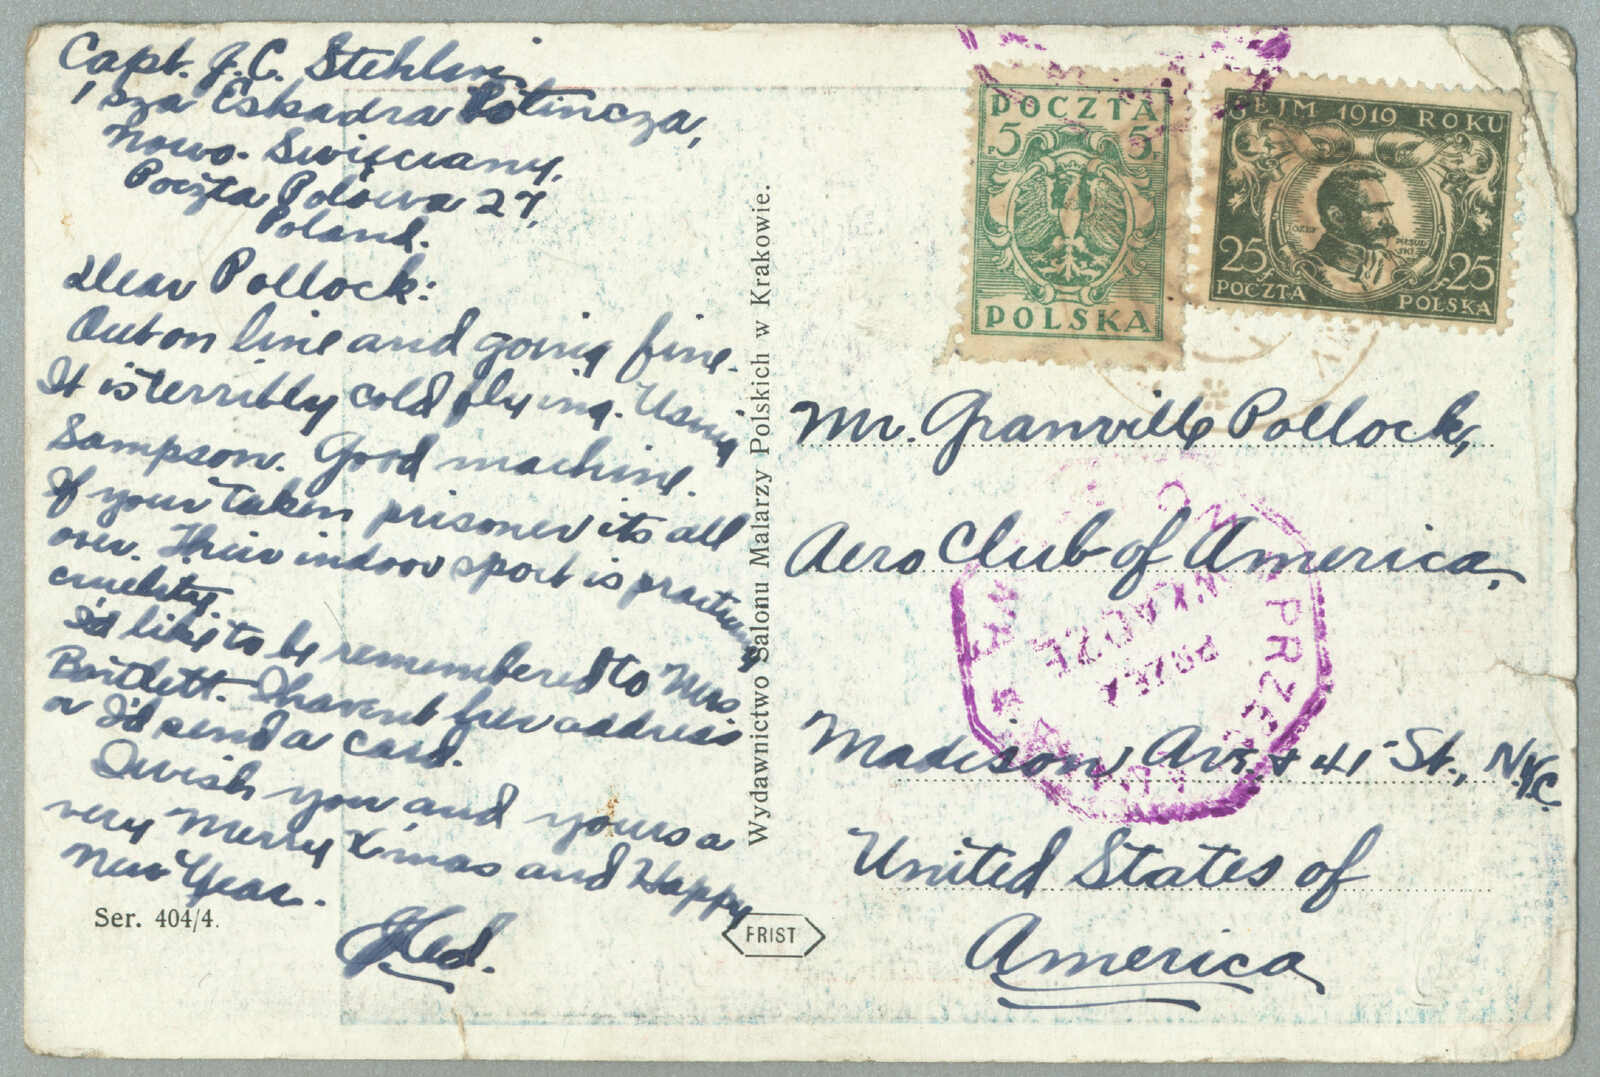 Capt. J.C. Stehlin
1sza Eskadra Lotincza,
Nowo-Swięciany,
Poczta Polowa 27,
Poland.
Dear Pollock:
Out on line and going fine.
It is terribly cold flying. Using
Sampson. Good machine.
If your taken prisoner its all
over. Their indoor sport is practicing
cruelity.
I'd like to be remembered to Mrs
Bartlett. I havent her address
or I'd send a card.
I wish you and yours a
very Merry X'mas and Happy
New Year.
Ser. 404/4.
Wydawnictwo Salonu Malarzy Polskich w Krakowie.
FRIST
POCZTA
5 5
POLSKA
SEJM 1919 ROKU
JÓZEF PIŁSUDSKI
25 25
POCZTA POLSKA
Mr. Granville Pollock,
Aero Club of America,
Madison Ave. & 41 St., N.Y.C.
United States of
America